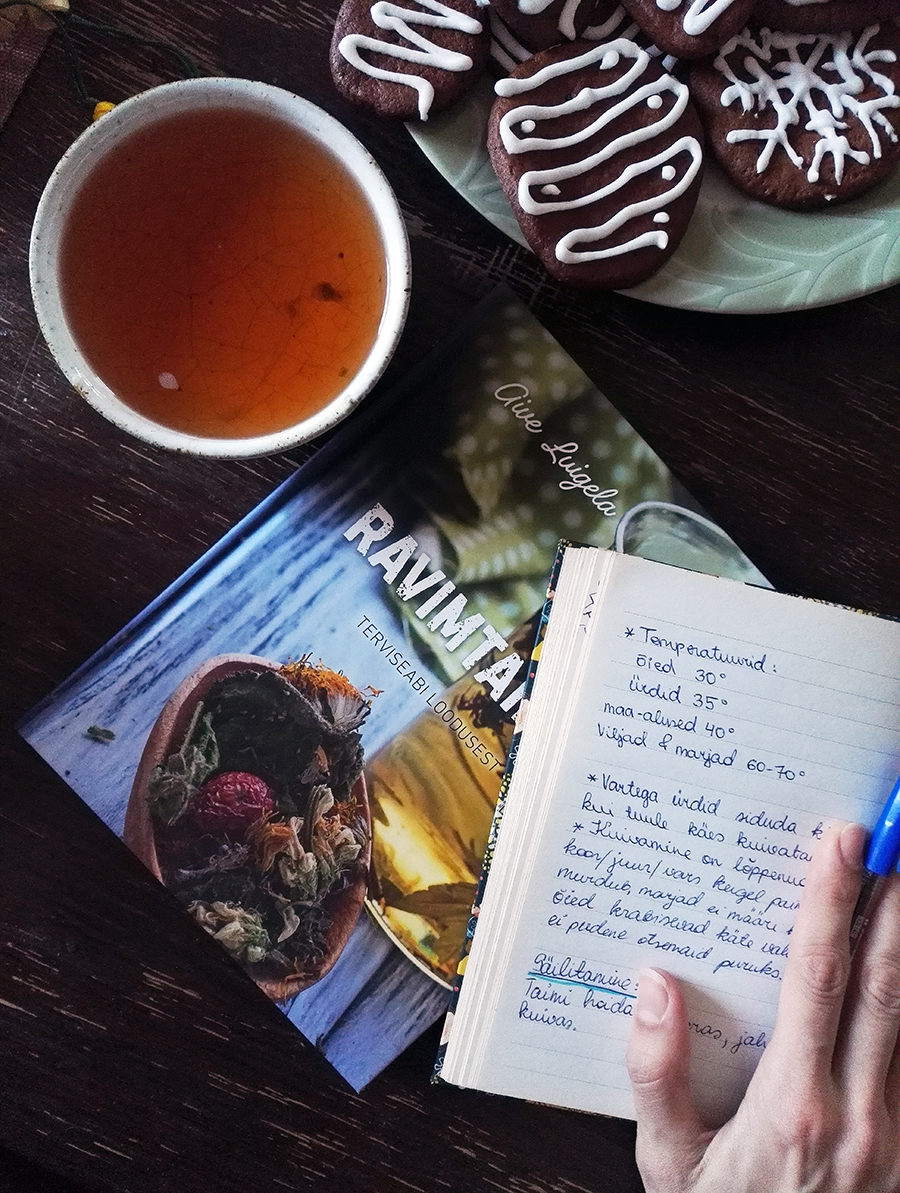 Aive Luigela
RAVIMTA
TERVISEABI LOODUSEST
* Temperatuurid:
õied 30°
ürdid 35°
maa-alused 40°
viljad & marjad 60-70°
* Vartega ürdid siduda k
kui tuule käes kuivata
* Kuivamine on lõppenu
koor/juur/vars keigel pain
murdub, marjad ei määri
õied krabisevad käte vah
ei pudene otsemaid puruks.
Säilitamine:
Taimi hoida ras, jah
kuivas.